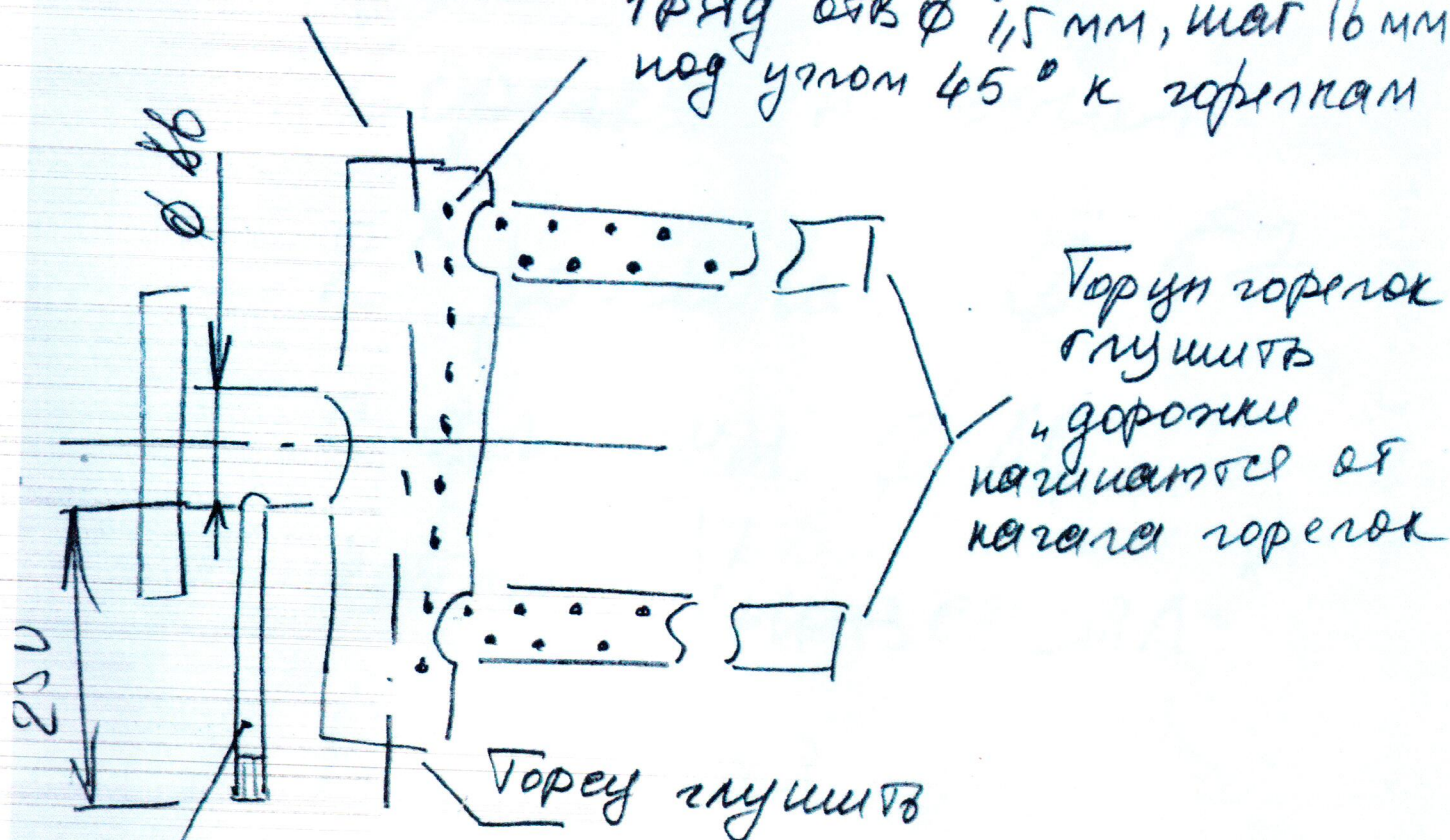 1 ряд отв ϕ 1,5 мм, шаг 16 мм
под углом 45° к горелкам
ϕ 86
Торцы горелок
глушить
"дорожки
начинаются от
начала горелок
250
Торец глушить